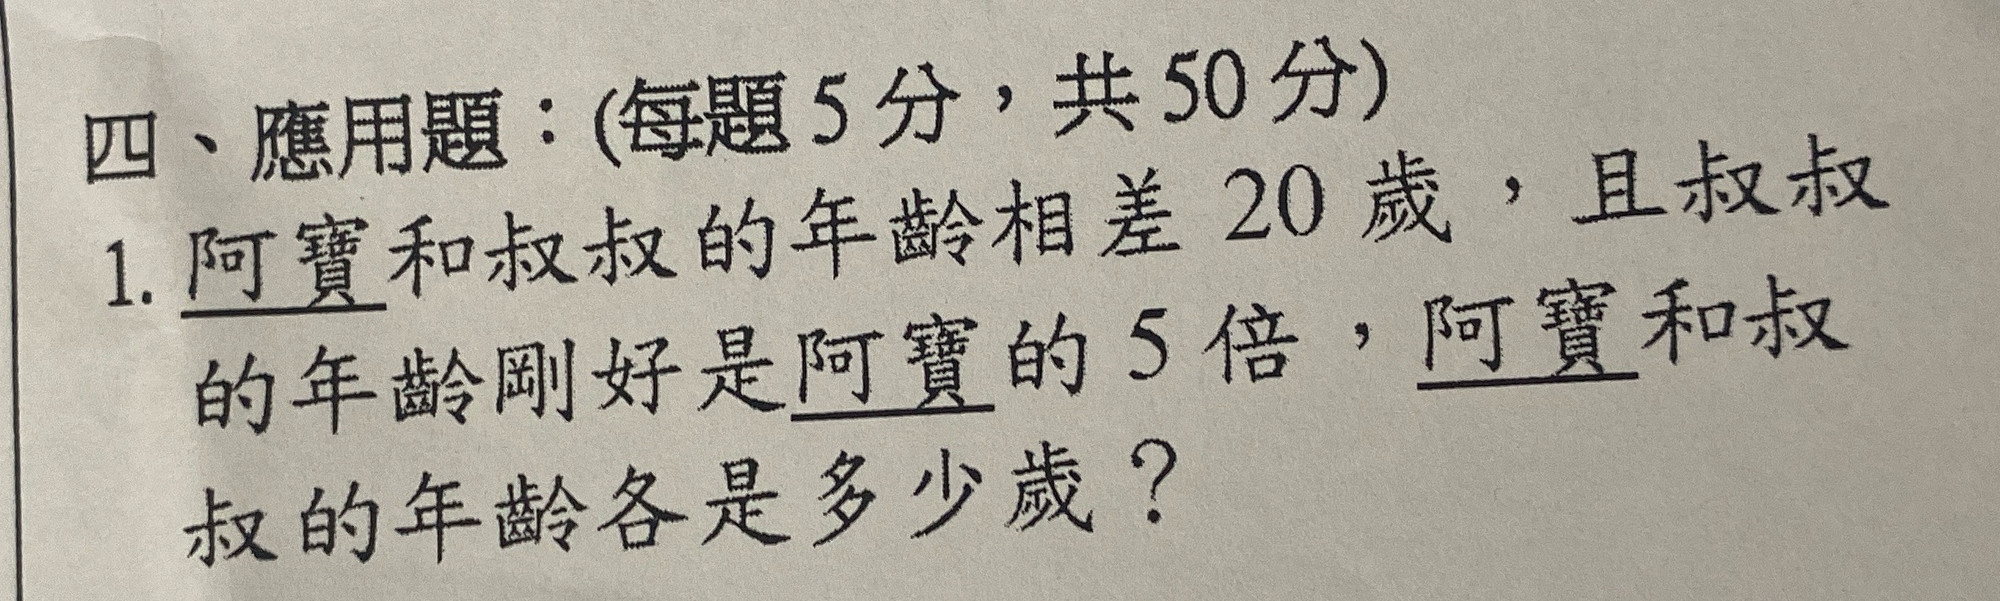 四、應用題：(每題5分，共50分)
1. 阿寶和叔叔的年齡相差 20 歲，且叔叔
的年齡剛好是阿寶的 5 倍，阿寶和叔
叔的年齡各是多少歲？